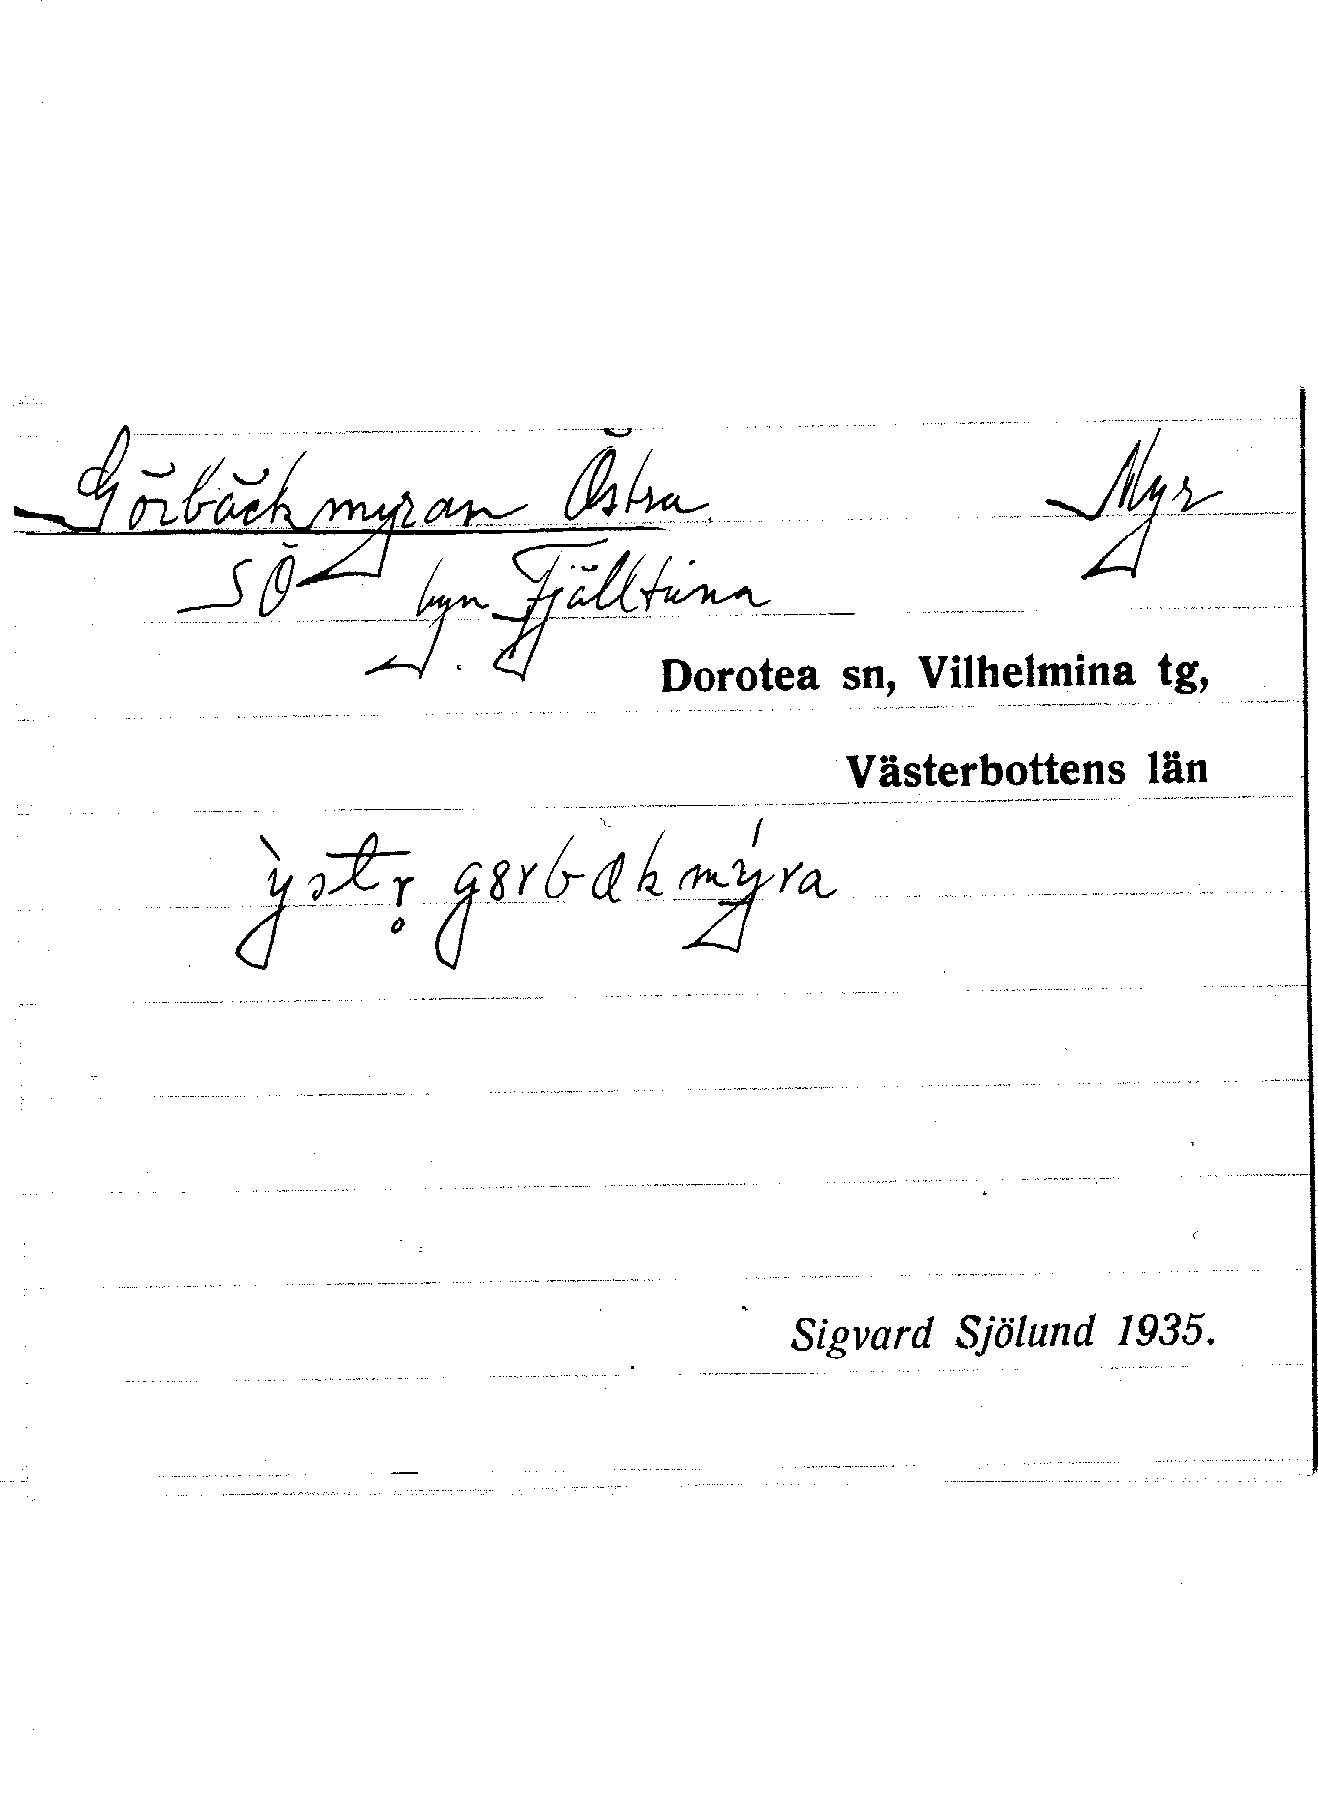 Görbäckmyran Östra. Myr
SÖ byn Fjälltuna
Dorotea sn, Vilhelmina tg,
Västerbottens län
ỳstr̥ gɵrbækmýra
Sigvard Sjölund 1935.